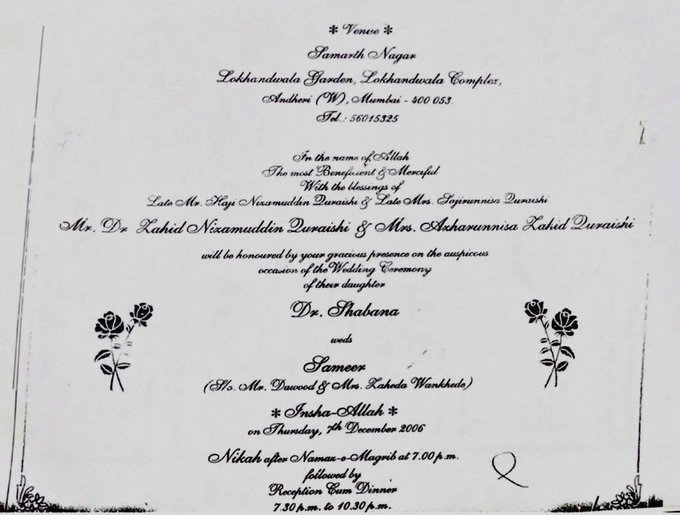 * Venue *
Samarth Nagar
Lokhandwala Garden, Lokhandwala Complex,
Andheri (W), Mumbai - 400 053.
Tel.: 56015325
In the name of Allah
The most Beneficient & Merciful
With the blessings of
Late Mr. Haji Nizamuddin Quraishi & Late Mrs. Sajirunnisa Quraishi
Mr. Dr. Zahid Nizamuddin Quraishi & Mrs. Azharunnisa Zahid Quraishi
will be honoured by your gracious presence on the auspicous
occasion of the Wedding Ceremony
of their daughter
Dr. Shabana
weds
Sameer
(S/o. Mr. Dawood & Mrs. Zaheda Wankhede)
* Insha-Allah *
on Thursday, 7th December 2006
Nikah after Namaz-e-Magrib at 7.00 p.m.
followed by
Reception Cum Dinner
7.30 p.m. to 10.30 p.m.